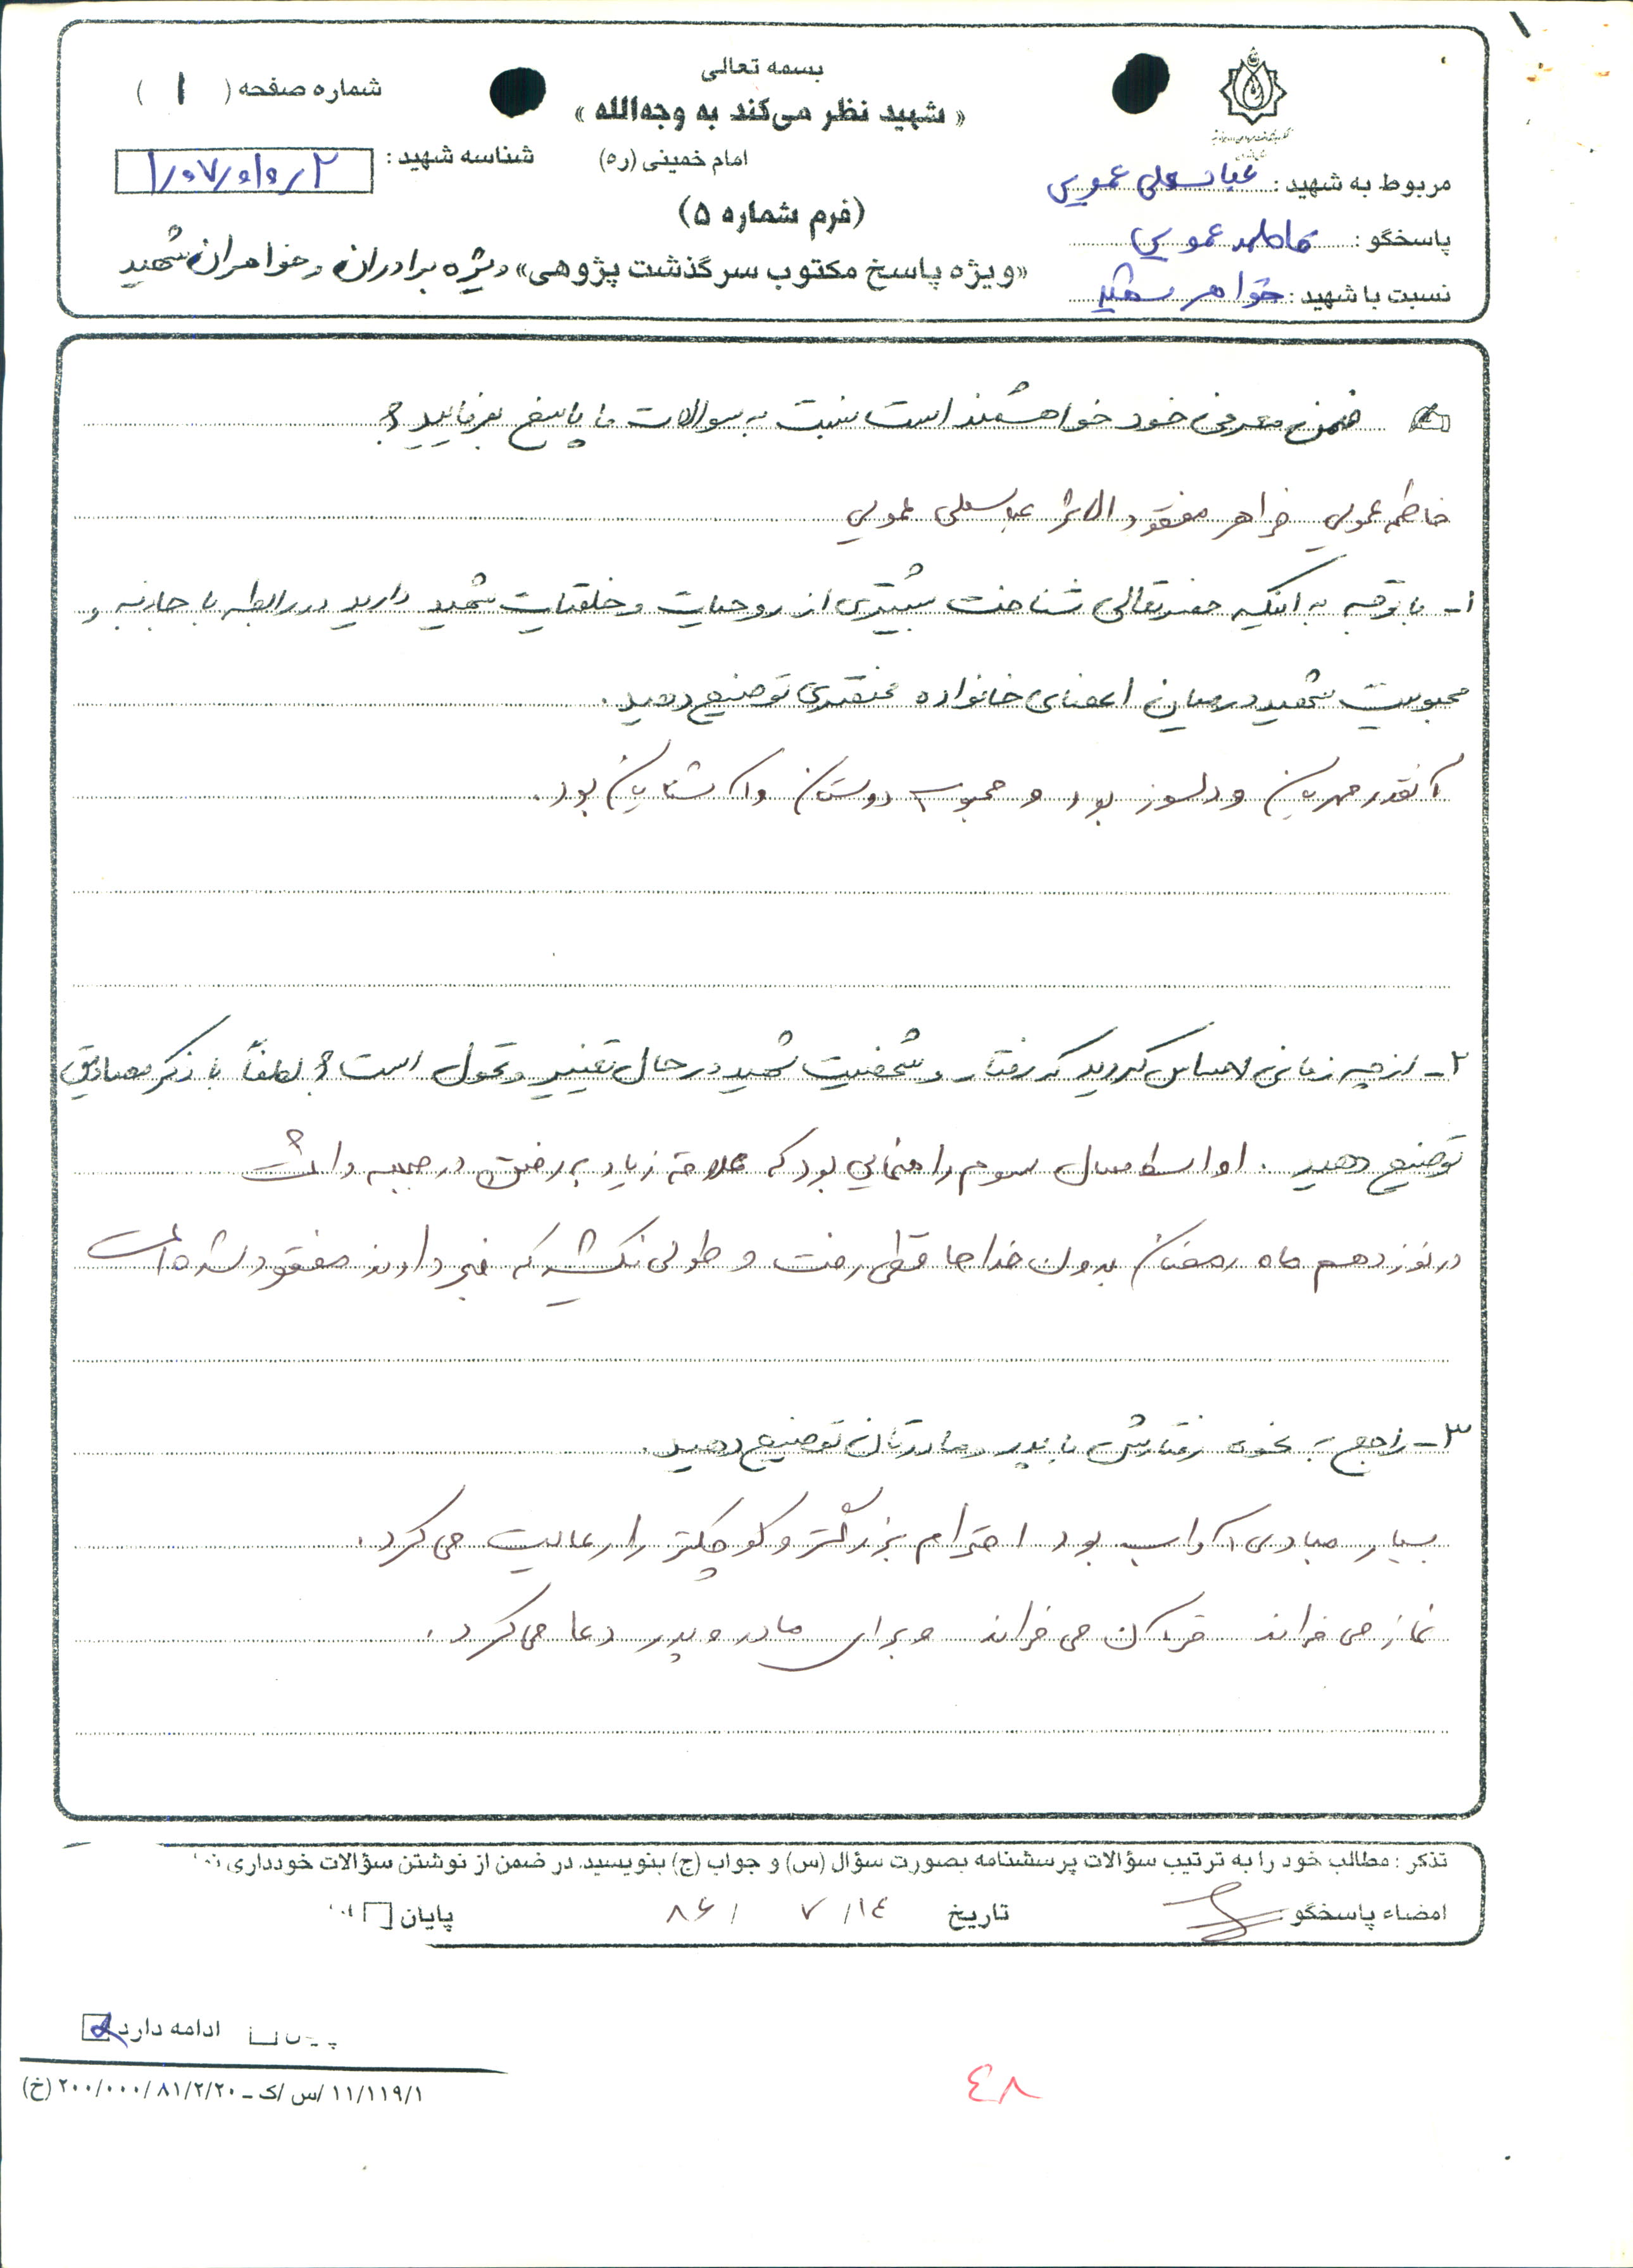 بسمه تعالی
« شهید نظر می‌کند به وجه‌الله »
امام خمینی (ره)
(فرم شماره ۵)
«ویژه پاسخ مکتوب سرگذشت پژوهی» ویژه برادران و خواهران شهید
شماره صفحه ( ۱ )
شناسه شهید :
مربوط به شهید : عباسعلی عمویی
پاسخگو : فاطمه عمویی
نسبت با شهید : خواهر شهید
ضمن معرفی خود خواهشمند است نسبت به سوالات ما پاسخ بفرمایید؟
فاطمه عمویی خواهر مفقود الاثر عباسعلی عمویی
۱- با توجه به اینکه حضرتعالی شناخت بیشتری از روحیات و خلقیات شهید دارید در رابطه با جاذبه و
محبوبیت شهید در میان اعضای خانواده مختصری توضیح دهید.
آنقدر مهربان و دلسوز بود و محبوب دوستان و آشنایان بود.
۲- از چه زمانی احساس کردید که رفتار و شخصیت شهید در حال تغییر و تحول است؟ لطفاً با ذکر مصادیق
توضیح دهید. اواسط سال سوم راهنمایی بود که علاقه زیاد به رفتن در جبهه داشت
در نوزدهم ماه رمضان بدون خداحافظی رفت و طولی نکشید که خبر دادند مفقود شده است
۳- راجع به نحوه رفتارش با پدر و مادرتان توضیح دهید.
بسیار مبادی آداب بود احترام بزرگتر و کوچکتر را رعایت می کرد.
نماز می خواند قرآن می خواند و برای مادر و پدر دعا می کرد.
تذکر : مطالب خود را به ترتیب سؤالات پرسشنامه بصورت سؤال (س) و جواب (ج) بنویسید. در ضمن از نوشتن سؤالات خودداری
امضاء پاسخگو : تاریخ ۱٤/ ۷ /۸۶ پایان
ادامه دارد
۱۱/۱۱۹/۱ /س /ک - ۲۰۰/۰۰۰/۸۱/۲/۲۰ (خ)
٤٨